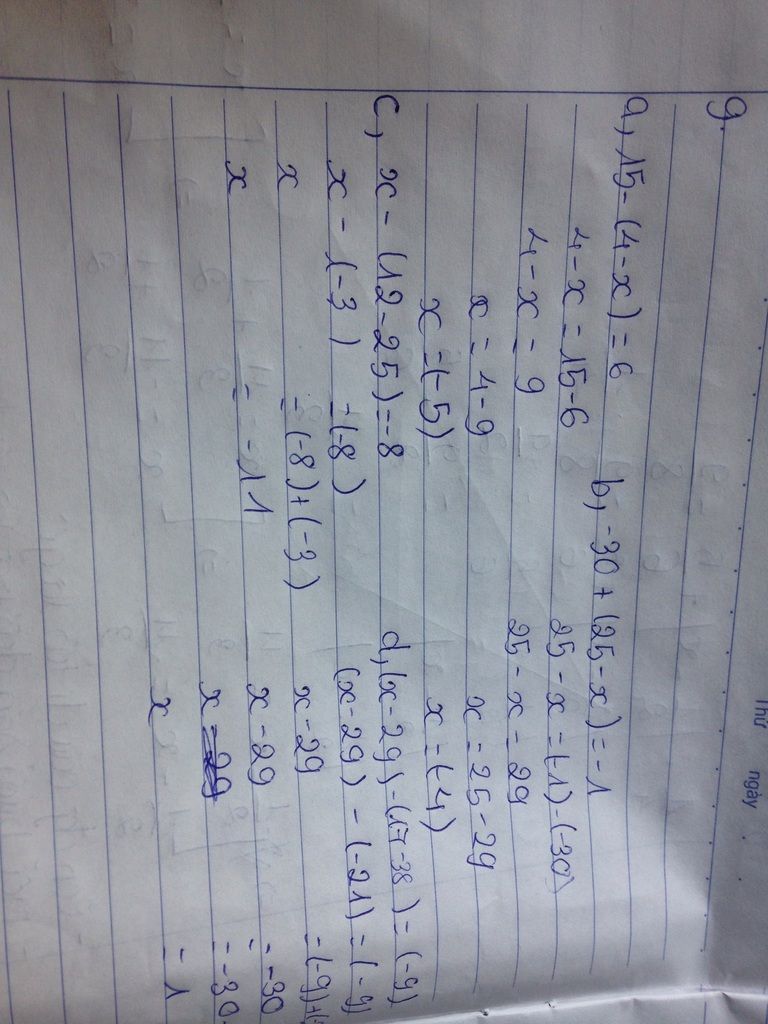 Thứ ngày
9.
a, 15 - (4-x) = 6
4-x = 15-6
4-x = 9
x = 4-9
x = (-5)
b, -30 + (25-x) = -1
25 - x = (-1) - (-30)
25 - x = 29
x = 25 - 29
x = (-4)
c, x - (12-25) = -8
x - (-3) = (-8)
x = (-8) + (-3)
x = -11
d, (x-29) - (17-38) = (-9)
(x-29) - (-21) = (-9)
x-29 = (-9)+(
x-29 = -30
x = -30
x = 1